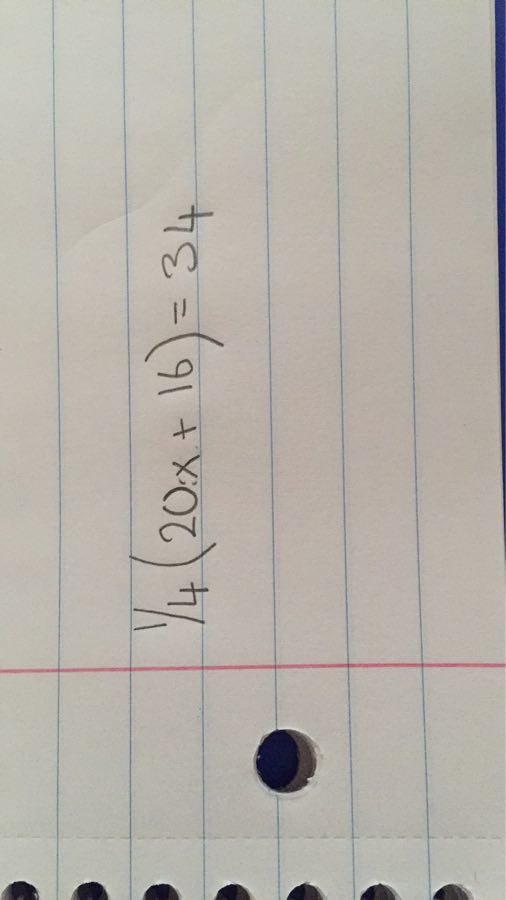 1/4(20x + 16) = 34